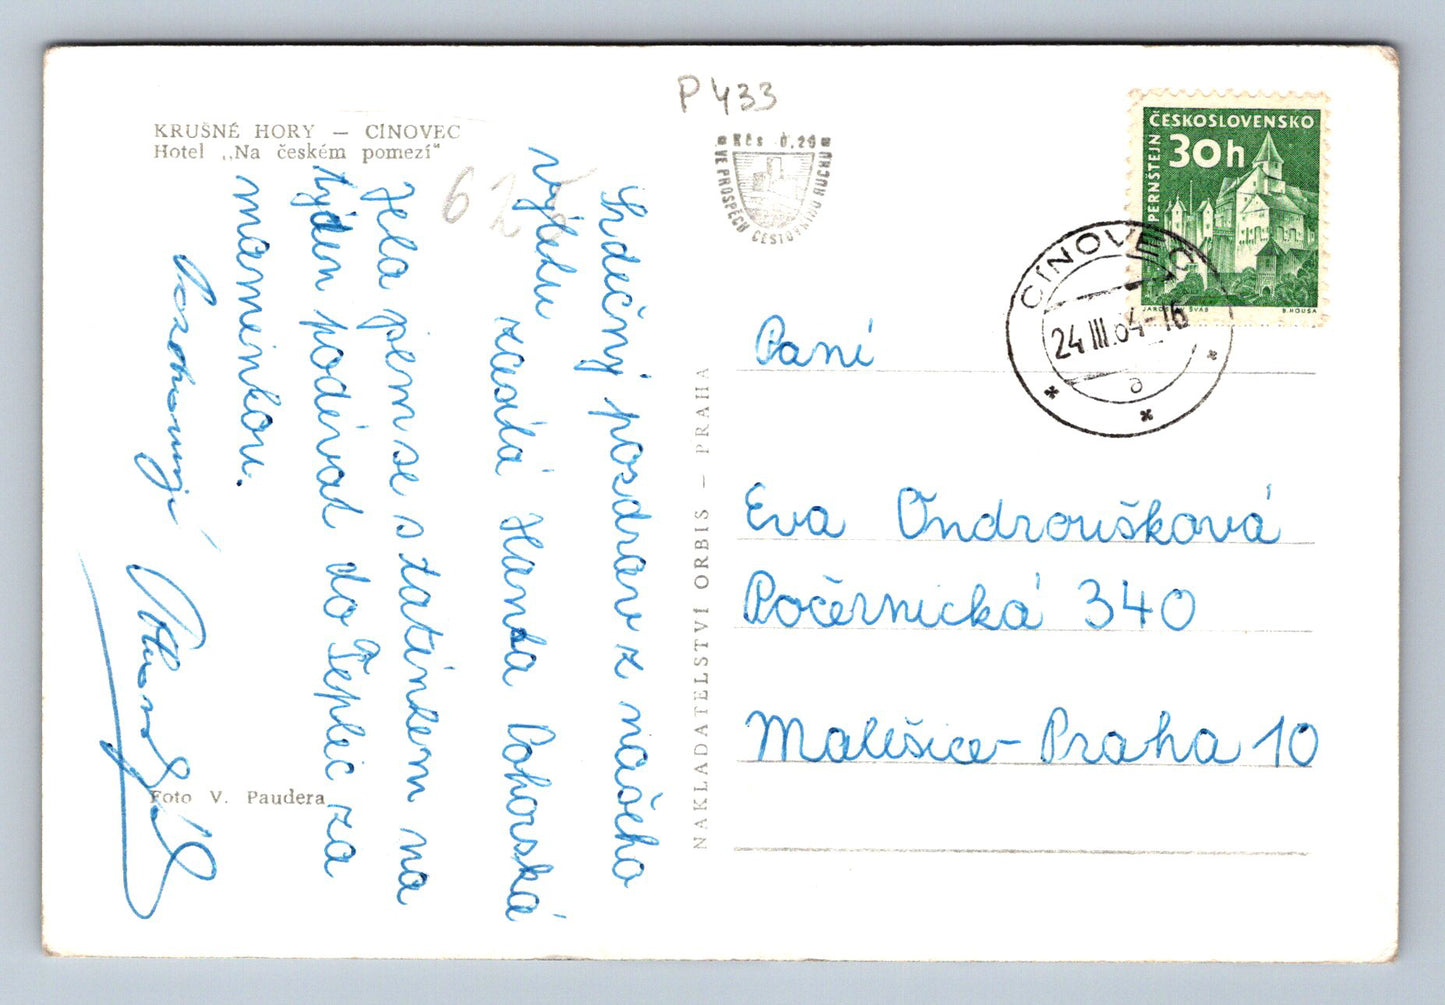 KRUŠNÉ HORY — CÍNOVEC
Hotel „Na českém pomezí“
P 433
62
Kčs 0,20
VE PROSPĚCH CESTOVNÍHO RUCHU
ČESKOSLOVENSKO
30h
PERNŠTEJN
JAROSLAV ŠVÁB
B. HOUSA
CÍNOVEC
24.III.64-16
a
Srdečný pozdrav z našeho
výletu zasílá Hanka Pohorská
Jela jsem se s tatínkem na
týden podívat do Teplic za
maminkou.
pozdravují
Foto V. Paudera
NAKLADATELSTVÍ ORBIS — PRAHA
Paní
Eva Ondroušková
Počernická 340
Malešice - Praha 10